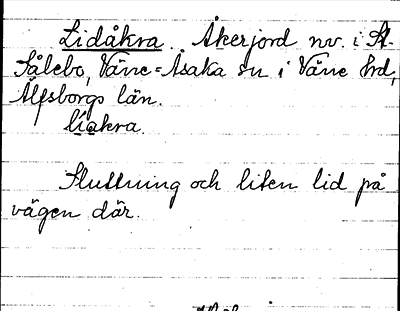 Lidåkra. Åkerjord nv. i St.
Sålebo, Väne-Åsaka sn i Väne hd,
Älfsborgs län.
li̇́akra.

Sluttning och liten lid på
vägen där.